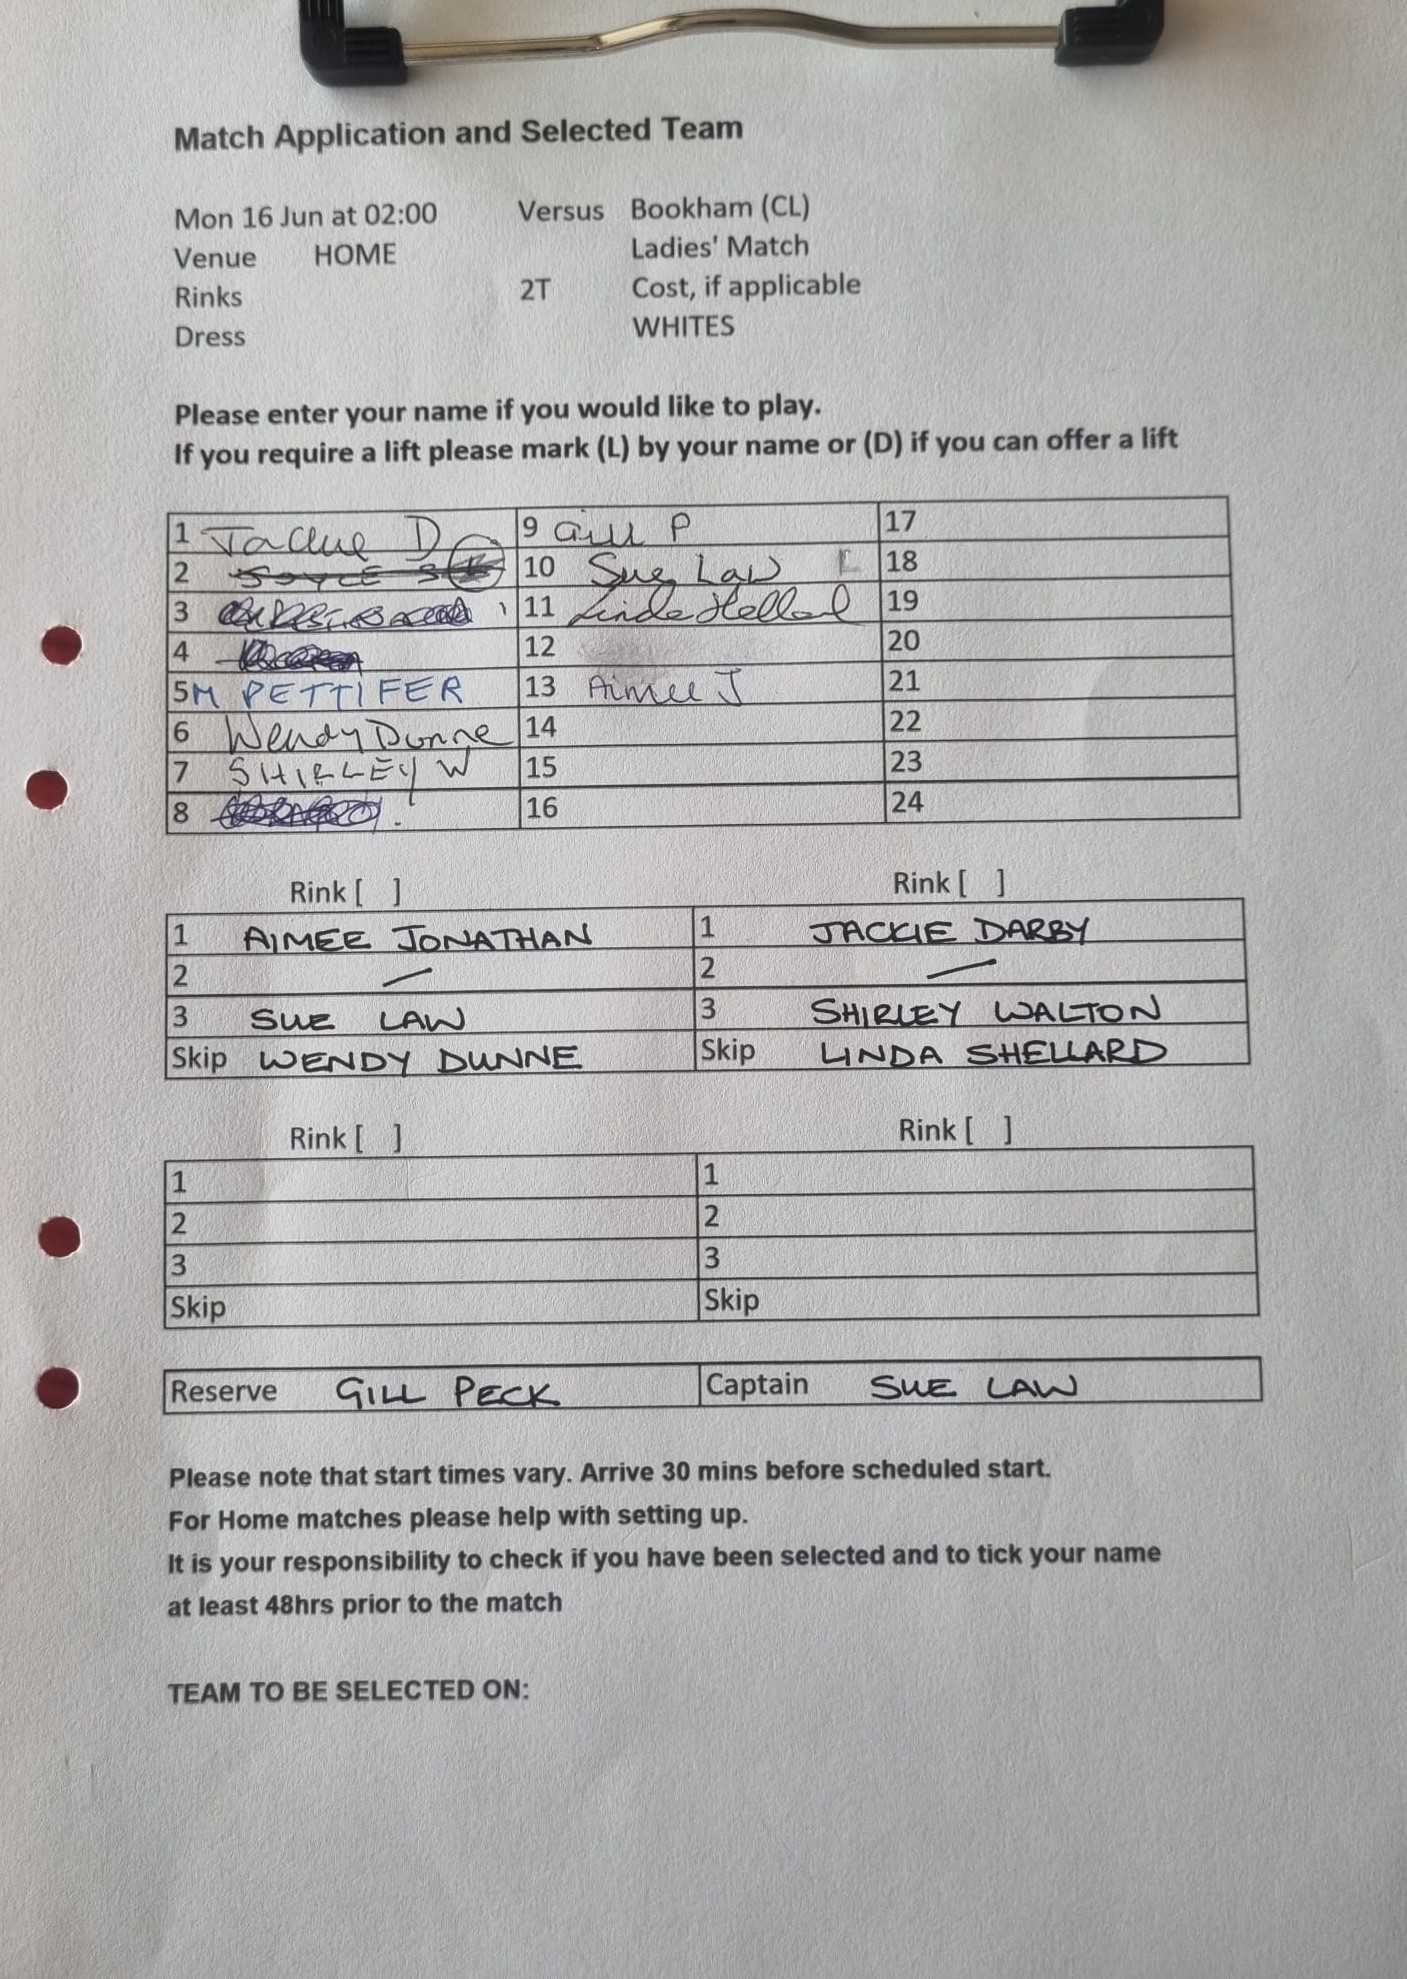 Match Application and Selected Team
Mon 16 Jun at 02:00 Versus Bookham (CL)
Venue HOME Ladies' Match
Rinks 2T Cost, if applicable
Dress WHITES
Please enter your name if you would like to play.
If you require a lift please mark (L) by your name or (D) if you can offer a lift
1 Jackie D 9 Gill P 17
2 JOYCE S 10 Sue Law L 18
3 11 Linda Shellard 19
4 12 20
5 M PETTIFER 13 Aimee J 21
6 Wendy Dunne 14 22
7 SHIRLEY W 15 23
8 16 24
Rink [ ] Rink [ ]
1 AIMEE JONATHAN 1 JACKIE DARBY
2 — 2 —
3 SUE LAW 3 SHIRLEY WALTON
Skip WENDY DUNNE Skip LINDA SHELLARD
Rink [ ] Rink [ ]
1 1
2 2
3 3
Skip Skip
Reserve GILL PECK Captain SUE LAW
Please note that start times vary. Arrive 30 mins before scheduled start.
For Home matches please help with setting up.
It is your responsibility to check if you have been selected and to tick your name
at least 48hrs prior to the match
TEAM TO BE SELECTED ON: